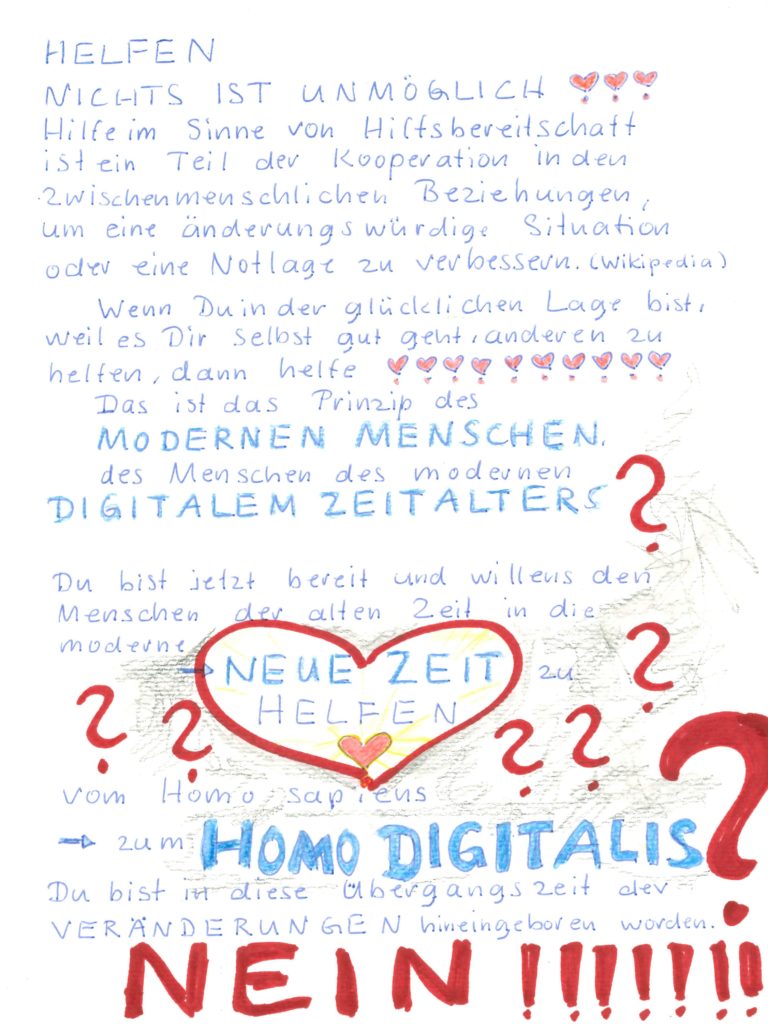 HELFEN
NICHTS IST UNMÖGLICH
Hilfe im Sinne von Hilfsbereitschaft
ist ein Teil der Kooperation in den
zwischenmenschlichen Beziehungen,
um eine änderungswürdige Situation
oder eine Notlage zu verbessern. (Wikipedia)
Wenn Du in der glücklichen Lage bist,
weil es Dir selbst gut geht, anderen zu
helfen, dann helfe
Das ist das Prinzip des
MODERNEN MENSCHEN,
des Menschen des modernen
DIGITALEM ZEITALTERS ?
Du bist jetzt bereit und willens den
Menschen der alten Zeit in die
moderne
→ NEUE ZEIT zu ?
HELFEN
? ? ? ?
vom Homo sapiens
→ zum HOMO DIGITALIS ?
Du bist in diese Übergangszeit der
VERÄNDERUNGEN hineingeboren worden.
NEIN !!!!!!!